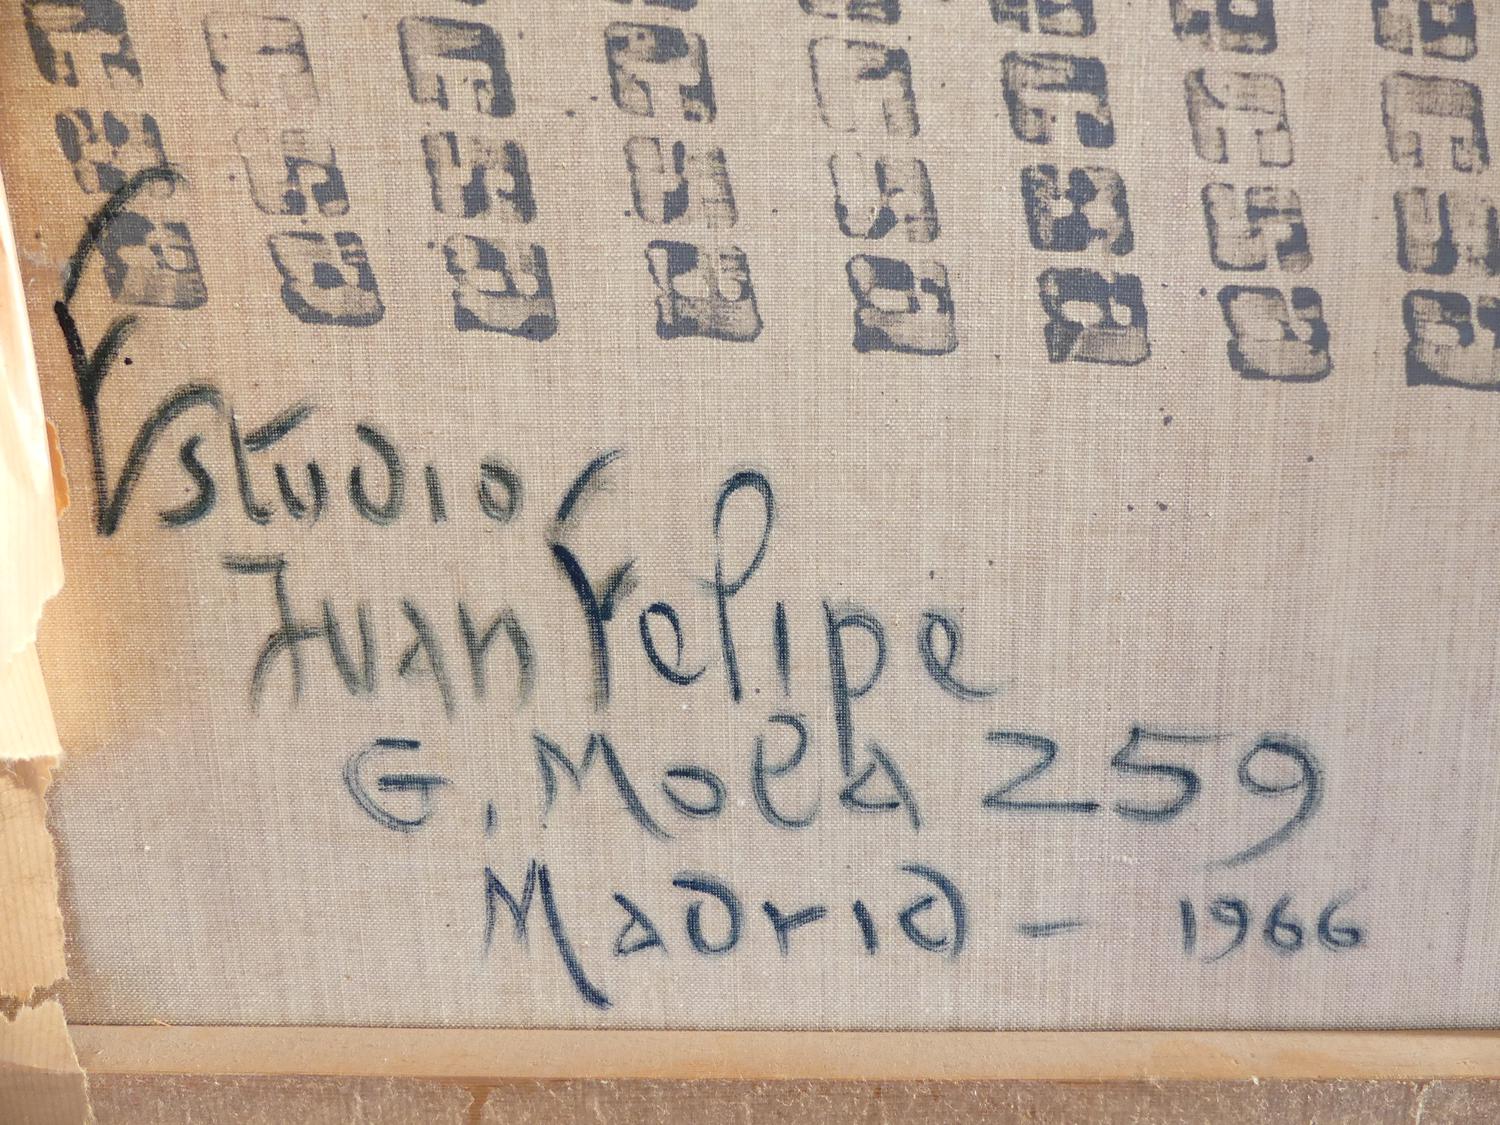 Estudio
Juan Felipe
G. Mola 259
Madrid - 1966